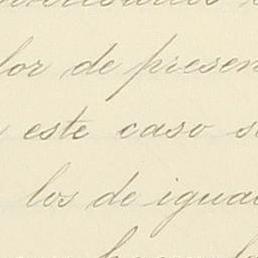 lor de presen
este caso s
los de igual